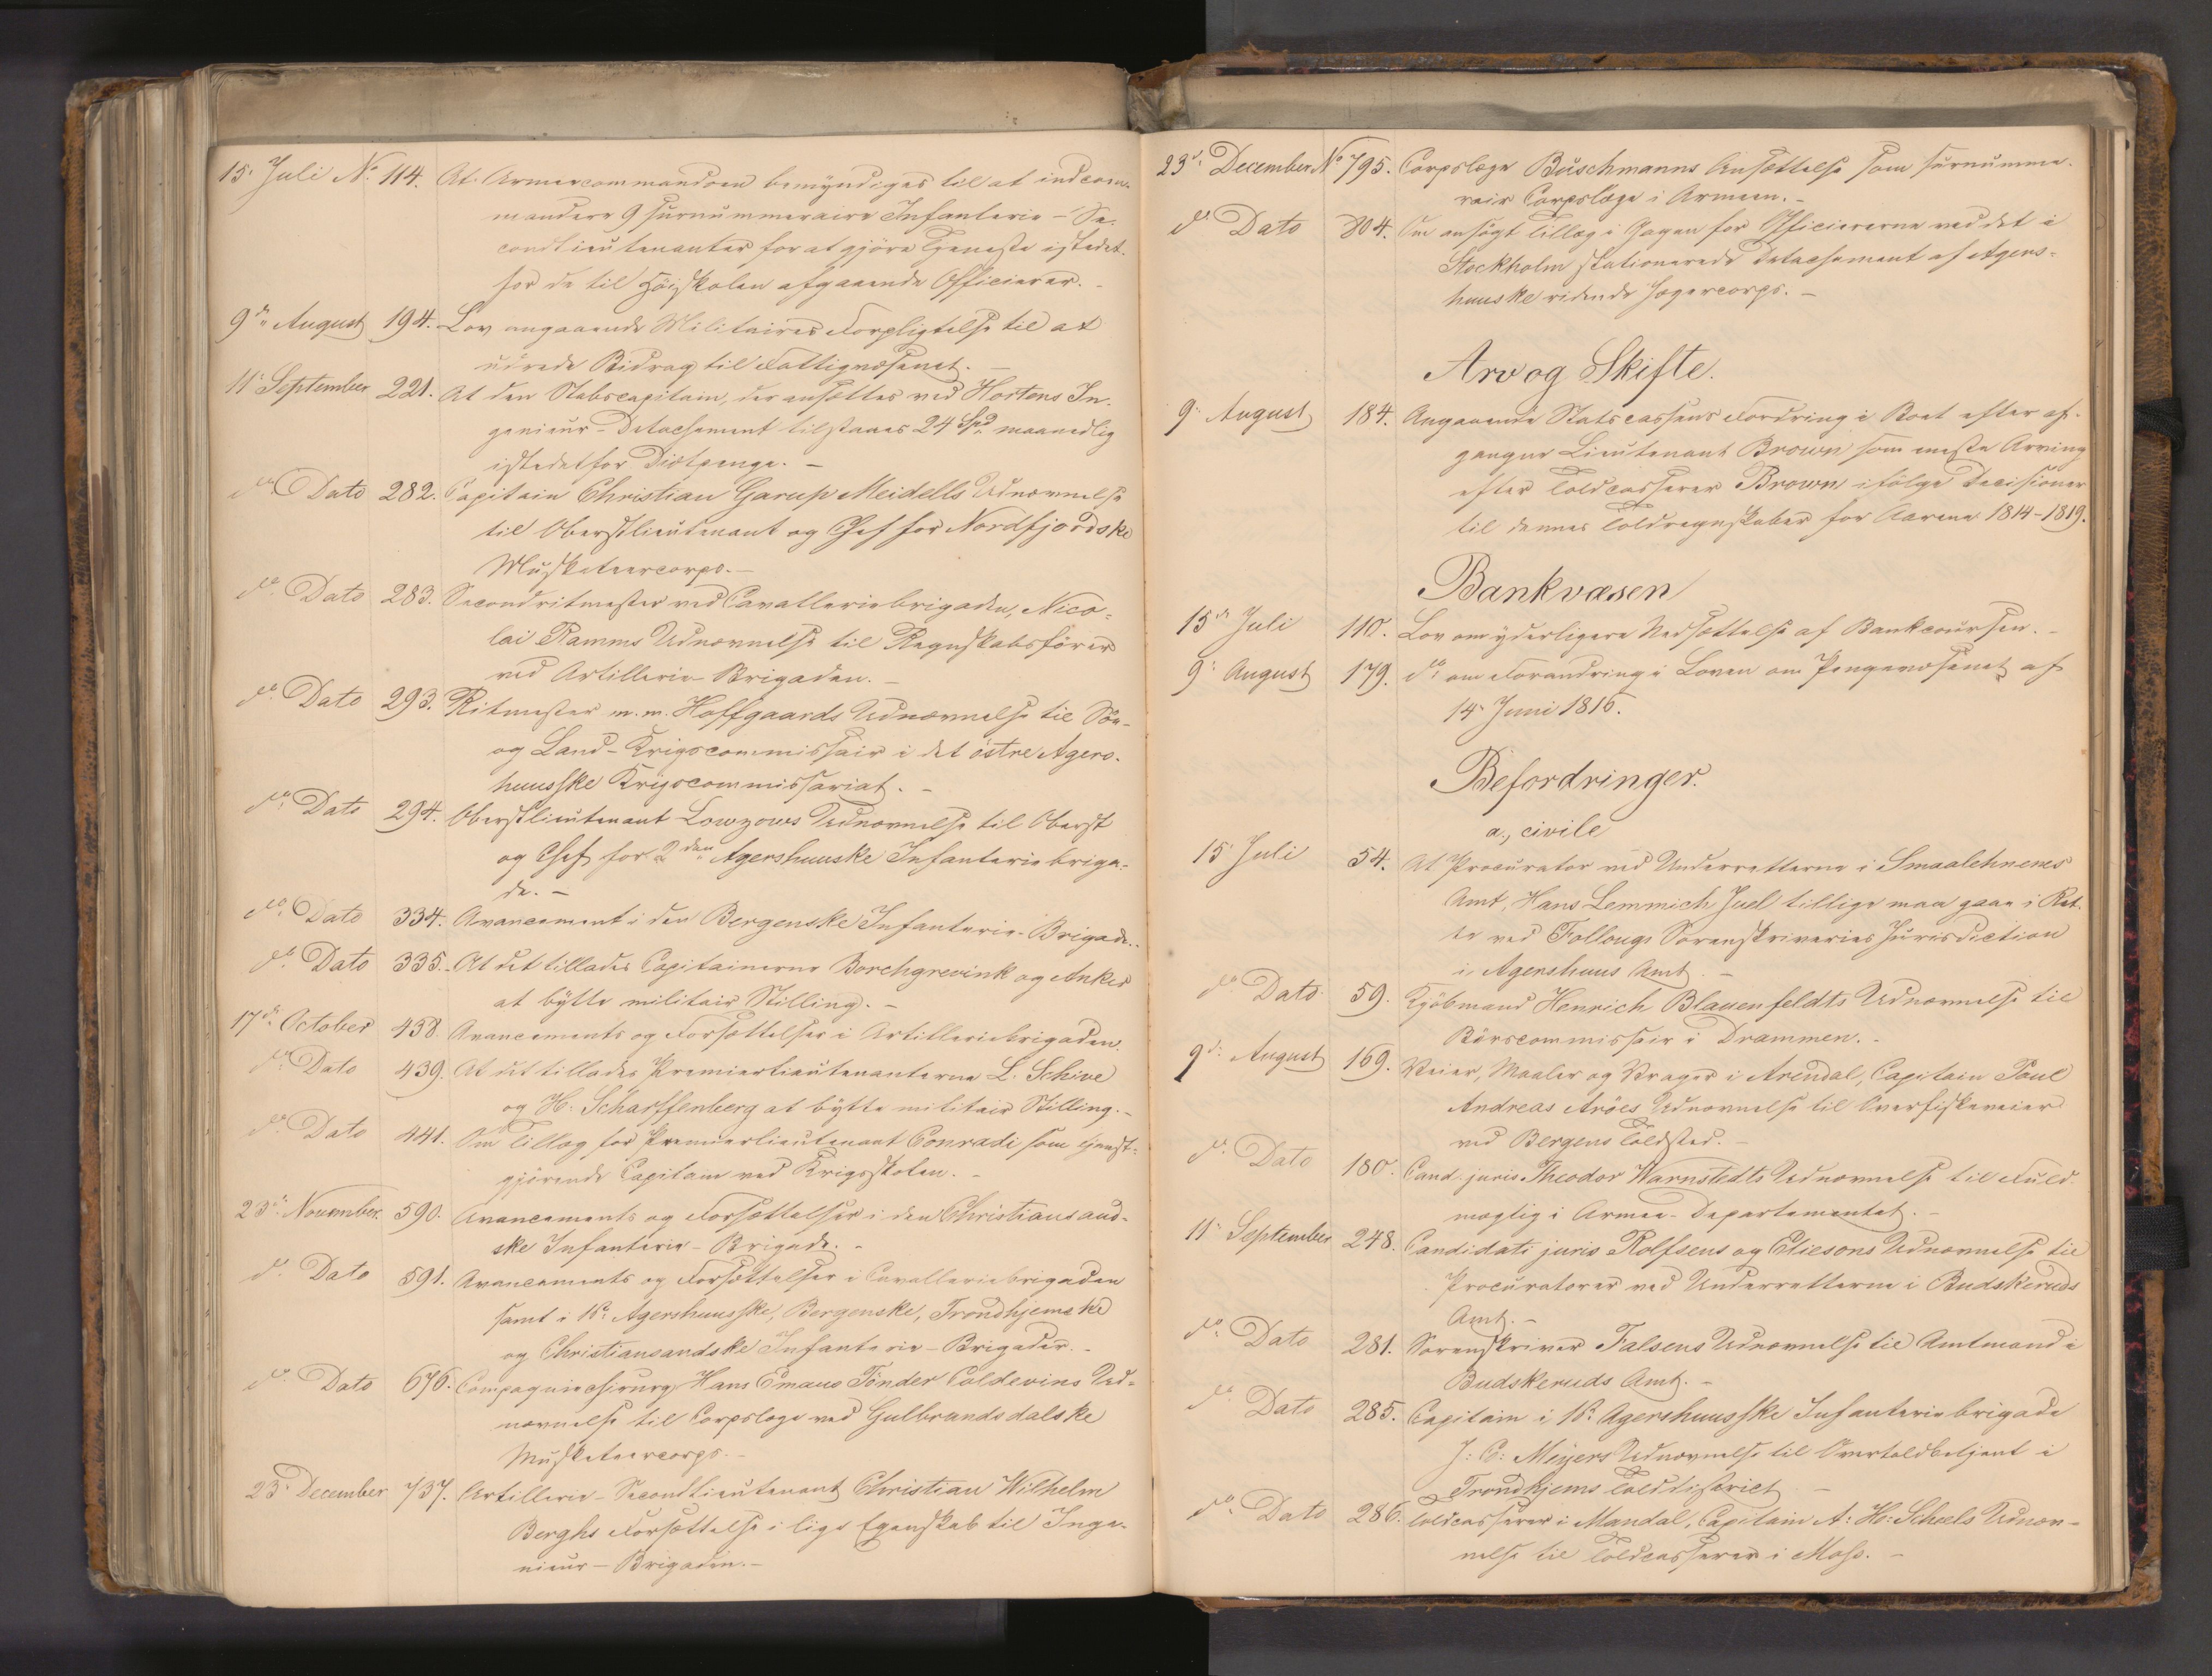 15. Juli No. 114. At Armeecommandoen bemyndiges til at indcom-
mandere 9 surnummeraire Infanterie-Se-
condlieutenanter for at gjöre Tjeneste istedet-
for de til Höiskolen afgaaende Officierer. -
9de August 194. Lov angaaende Militaires Forpligtelse til at
udrede Bidrag til Fattigvæsenet. -
11. September 221. At den Stabscapitain, der ansættes ved Hortens In-
genieur-Detachement tilstaaes 24 Spd. maanedlig
istedetfor Diætpenge. -
do. Dato 282. Capitain Christian Garup Meidells Udnævnelse
til Oberstlieutenant og Chef for Nordfjordske
Musketeercorps. -
do. Dato 283. Secondritmester ved Cavalleriebrigaden, Nico-
lai Ramms Udnævnelse til Regnskabsförer
ved Artillerie-Brigaden. -
do. Dato 293. Ritmester m. m. Hoffgaards Udnævnelse til Söe-
og Land-Krigscommissair i det östre Agers-
huusske Krigscommissariat. -
do. Dato 294. Oberstlieutenant Lowzows Udnævnelse til Oberst
og Chef for 2den Agershuuske Infanteriebriga-
de. -
do. Dato 334. Avancement i den Bergenske Infanterie-Brigade. -
do. Dato 335. At det tillades Capitainerne Borchgrevink og Anker
at bytte militair Stilling. -
17de October 438. Avancements og Forsættelser i Artilleriebrigaden.
do. Dato 439. At det tillades Premierlieutenanterne L. Schive
og H. Scharffenberg at bytte militair Stilling. -
do. Dato 441. Om Tillæg for Premierlieutenant Conradi som tjenst-
gjörende Capitain ved Krigsskolen. -
23de November. 590. Avancements og Forsættelser i den Christiansand-
ske Infanterie-Brigade. -
do. Dato 591. Avancements og Forsættelser i Cavalleriebrigaden
samt i 1ste Agershuusske, Bergenske, Trondhjemske
og Christiansandske Infanterie-Brigader. -
do. Dato 676. Compagniechirurg Hans Emaus Tönder Coldevins Ud-
nævnelse til Corpslæge ved Gulbrandsdalske
Musketeercorps. -
23. December 737. Artillerie-Secondlieutenant Christian Wilhelm
Berghs Forsættelse i lige Egenskab til Inge-
nieur-Brigaden. -
23de December No 795. Corpslæge Buschmanns Ansættelse som surnumme-
rair Corpslæge i Armeen. -
do. Dato 804. Om ansögt Tillæg i Gagen for Officiererne ved det i
Stockholm stationerede Detachement af Agers-
huuske ridende Jægercorps. -
Arv og Skifte.
9. August 184. Angaaende Statscassens Fordring i Boet efter af-
gangne Lieutenant Brown som eneste Arving
efter Toldcasserer Brown ifölge Decisioner
til dennes Toldregnskaber for Aarene 1814-1819.
Bankvæsen
15de Juli 110. Lov om yderligere Nedsættelse af Bankcoursen. -
9. August 179. do. om Forandring i Loven om Pengevæsenet af
14. Juni 1816.
Befordringer.
a., civile
15. Juli 54. At Procurator ved Underretterne i Smaalehnenes
Amt, Hans Lemmich Juel tillige maa gaae i Ret-
te ved Follougs Sorenskriveries Jurisdiction
i Agershuus Amt. -
do. Dato 59. Kjöbmand Henrich Blauenfeldts Udnævnelse til
Börscommissair i Drammen. -
9de August 169. Veier, Maaler og Vrager i Arendal, Capitain Poul
Andreas Aröes Udnævnelse til Overfiskeveier
ved Bergens Toldsted. -
do. Dato 180. Cand. juris Theodor Warnstedts Udnævnelse til Fuld-
mægtig i Armee-Departementet. -
11. September 248. Candidati juris Rolfsens og Eliesons Udnævnelse til
Procuratorer ved Underretterne i Budskeruds
Amt. -
do. Dato 281. Sorenskriver Falsens Udnævnelse til Amtmand i
Budskeruds Amt. -
do. Dato 285. Capitain i 1ste Agershuusske Infanteriebrigade
J: C: Meyers Udnævnelse til Overtoldbetjent i
Trondhjems Tolddistrict -
do. Dato 286. Toldcasserer i Mandal, Capitain A: H: Scheels Udnæv-
nelse til Toldcasserer i Moss. -